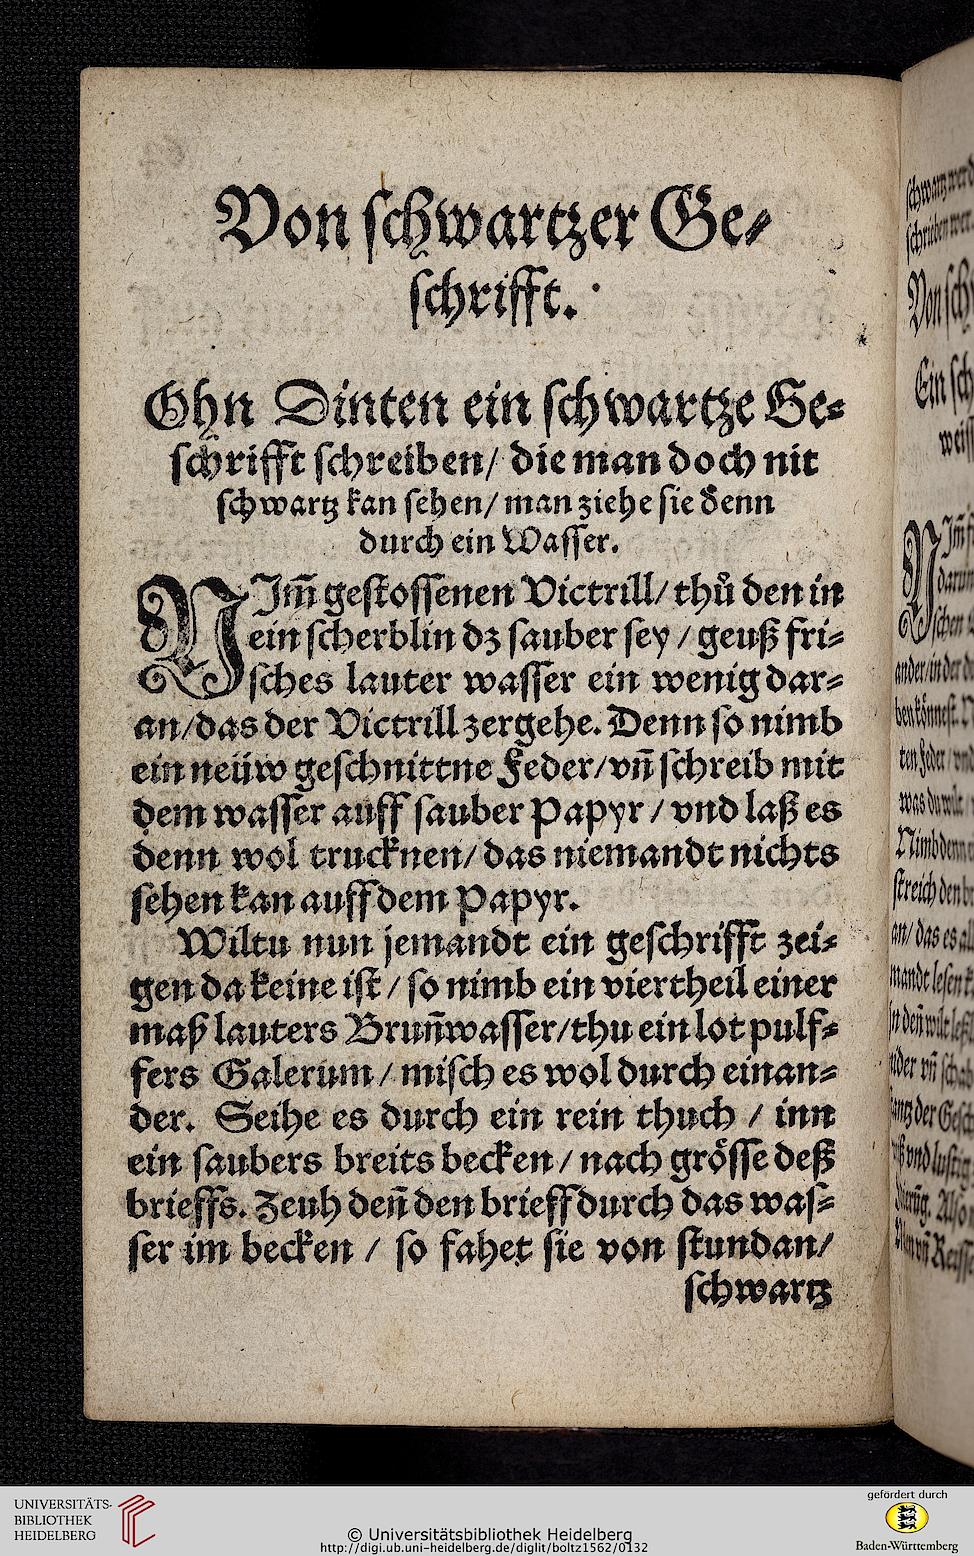 Von schwartzer Ge⸗
schrifft.
Ohn Dinten ein schwartze Ge⸗
schrifft schreiben/ die man doch nit
schwartz kan sehen/ man ziehe sie denn
durch ein Wasser.
NIm̃ gestossenen Victrill/ thů den in
ein scherblin dz sauber sey / geuß fri⸗
sches lauter wasser ein wenig dar⸗
an/ das der Victrill zergehe. Denn so nimb
ein neüw geschnittne Feder/ vñ schreib mit
dem wasser auff sauber Papyr / vnd laß es
denn wol trucknen/ das niemandt nichts
sehen kan auff dem Papyr.
Wiltu nun jemandt ein geschrifft zei⸗
gen da keine ist / so nimb ein viertheil einer
maß lauters Brun̄wasser/ thu ein lot pulf⸗
fers Galerum / misch es wol durch einan⸗
der. Seihe es durch ein rein thuch / inn
ein saubers breits becken / nach grösse deß
brieffs. Zeuh den̄ den brieff durch das was⸗
ser im becken / so fahet sie von stundan/
schwartz
UNIVERSITÄTS-
BIBLIOTHEK
HEIDELBERG
© Universitätsbibliothek Heidelberg
http://digi.ub.uni-heidelberg.de/diglit/boltz1562/0132
gefördert durch
Baden-Württemberg